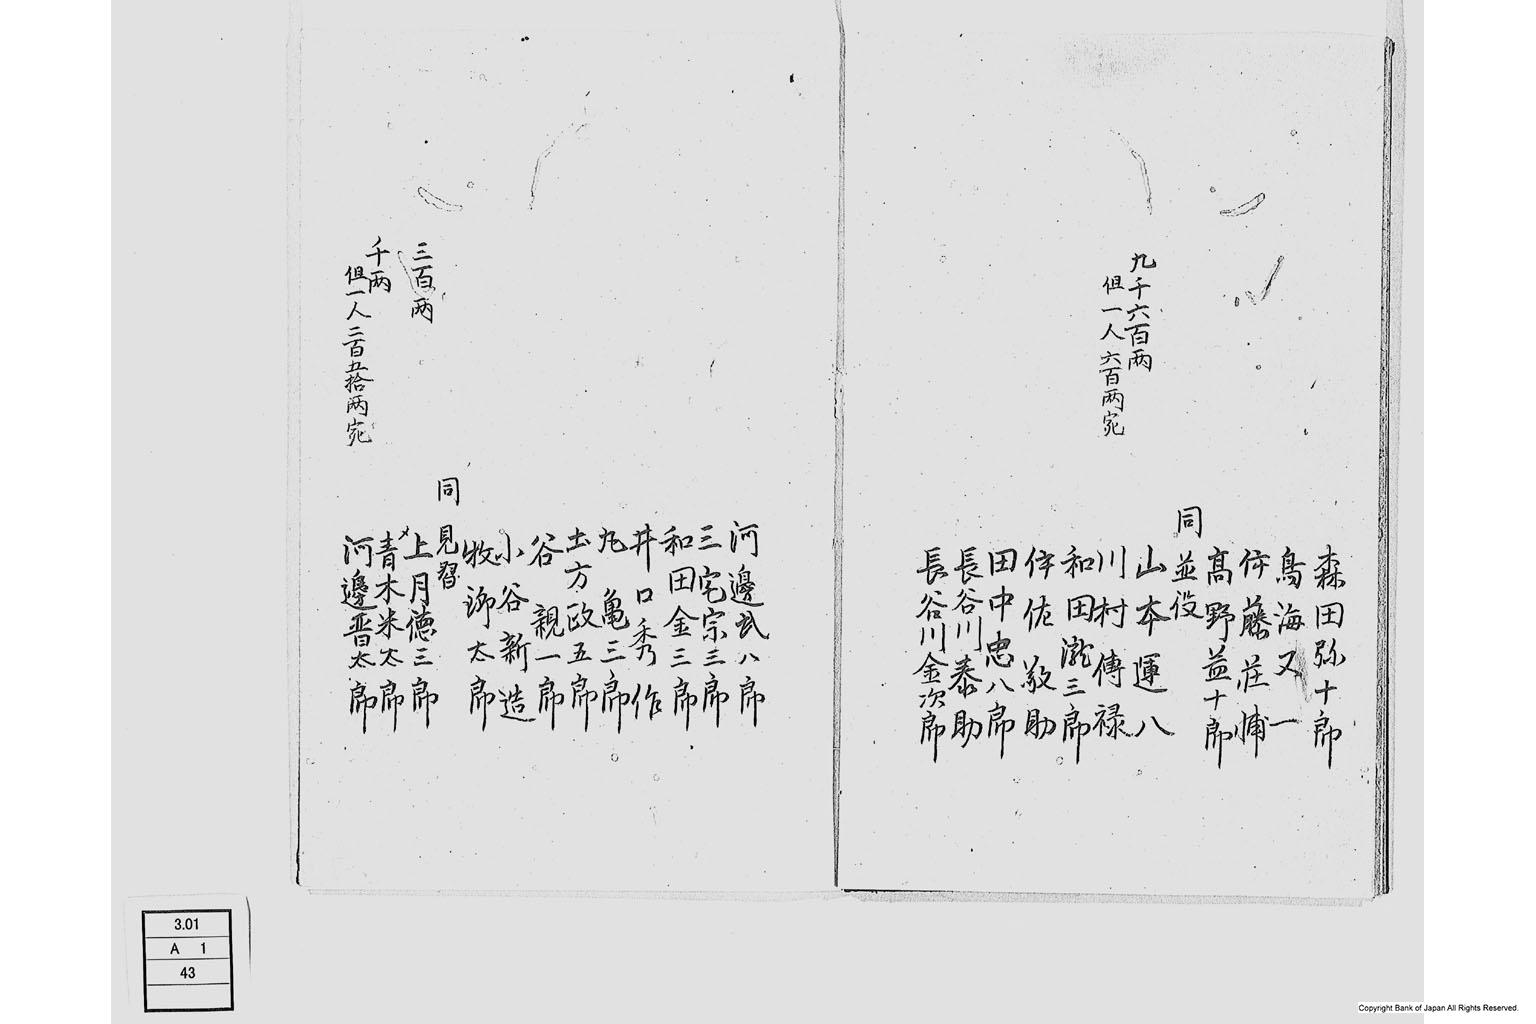 森田弥十郎
鳥海又一
伴藤荘愽
髙野益十郎
同
並役
九千六百両
但一人六百両宛
山本運八
川村傳禄
和田瀧三郎
伴佐敬助
田中忠八郎
長谷川泰助
長谷川金次郎
河邊武八郎
三宅宗三郎
和田金三郎
井口秀作
丸亀三郎
土方政五郎
谷親一郎
小谷新造
牧御太郎
同
見習
三百両
上月徳三郎
千両
但一人二百五拾両宛
青木米太郎
河邊晋太郎
3.01
A 1
43
Copyright Bank of Japan All Rights Reserved.